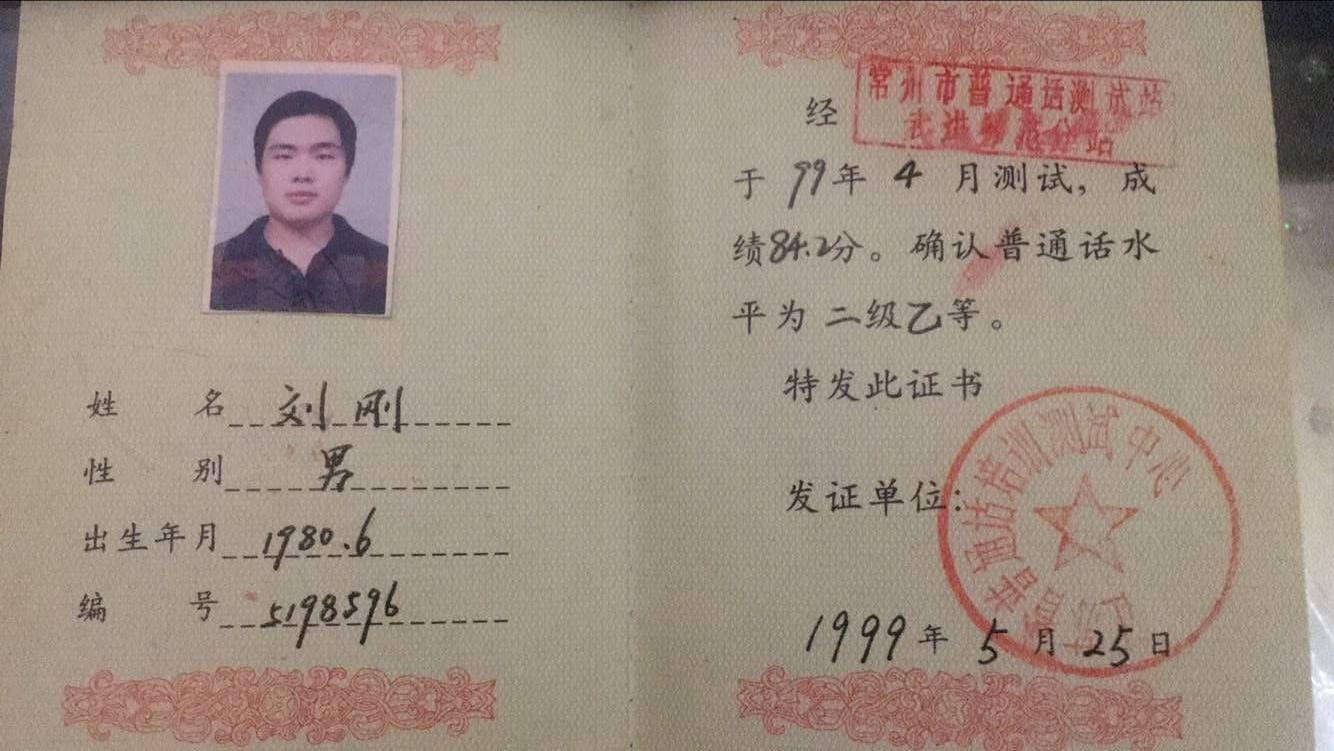 姓 名 刘刚
性 别 男
出生年月 1980.6
编 号 5198596
经
常州市普通话测试站
武进师范分站
于 99年 4 月测试，成
绩84.2分。确认普通话水
平为 二级乙等。
特发此证书
发证单位：
普通话培训测试中心
1999年 5 月 25日